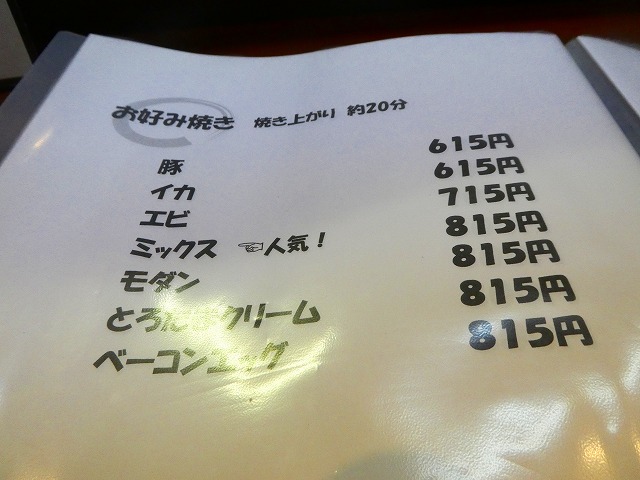 お好み焼き 焼き上がり 約20分
豚 615円
イカ 615円
エビ 715円
ミックス ☜人気！ 815円
モダン 815円
クリーム 815円
ベーコンエッグ 815円